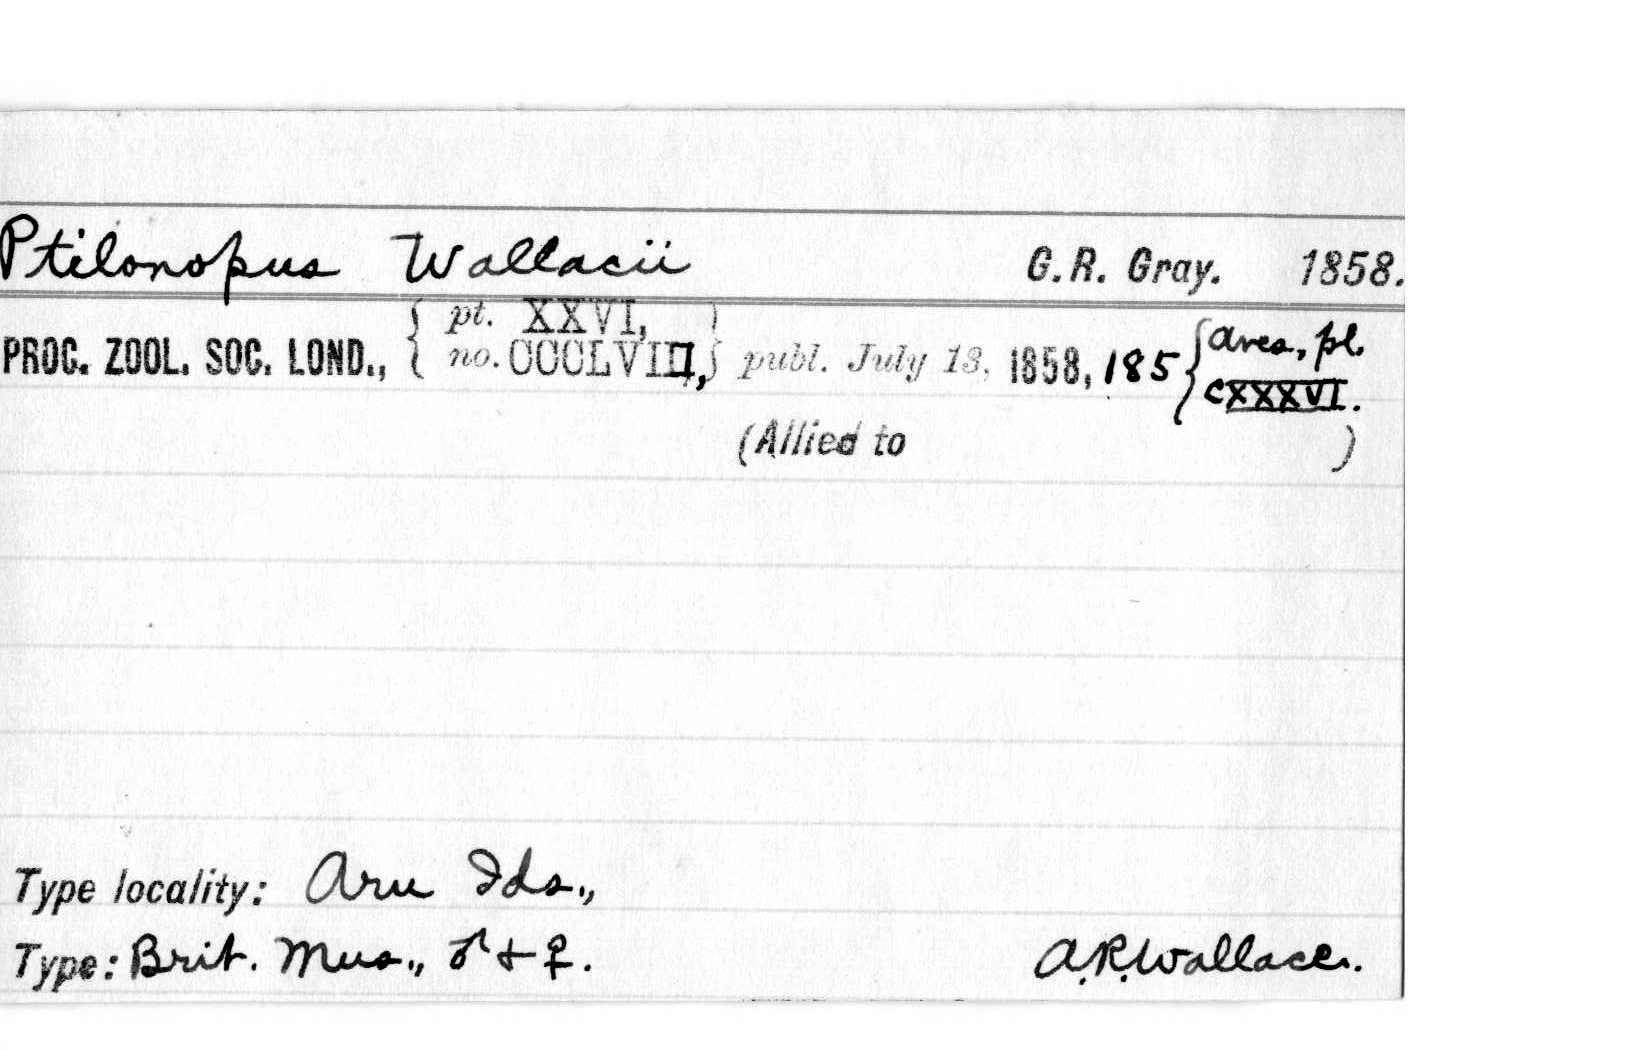 Ptilonopus Wallacii G.R. Gray. 1858.
PROC. ZOOL. SOC. LOND., { pt. XXVI, no. CCCLVIII, } publ. July 13, 1858, 185 { Aves, pl. CXXXVI.
(Allied to )
Type locality: Aru Ids.,
Type: Brit. Mus., ♂ + ♀. A.R. Wallace.